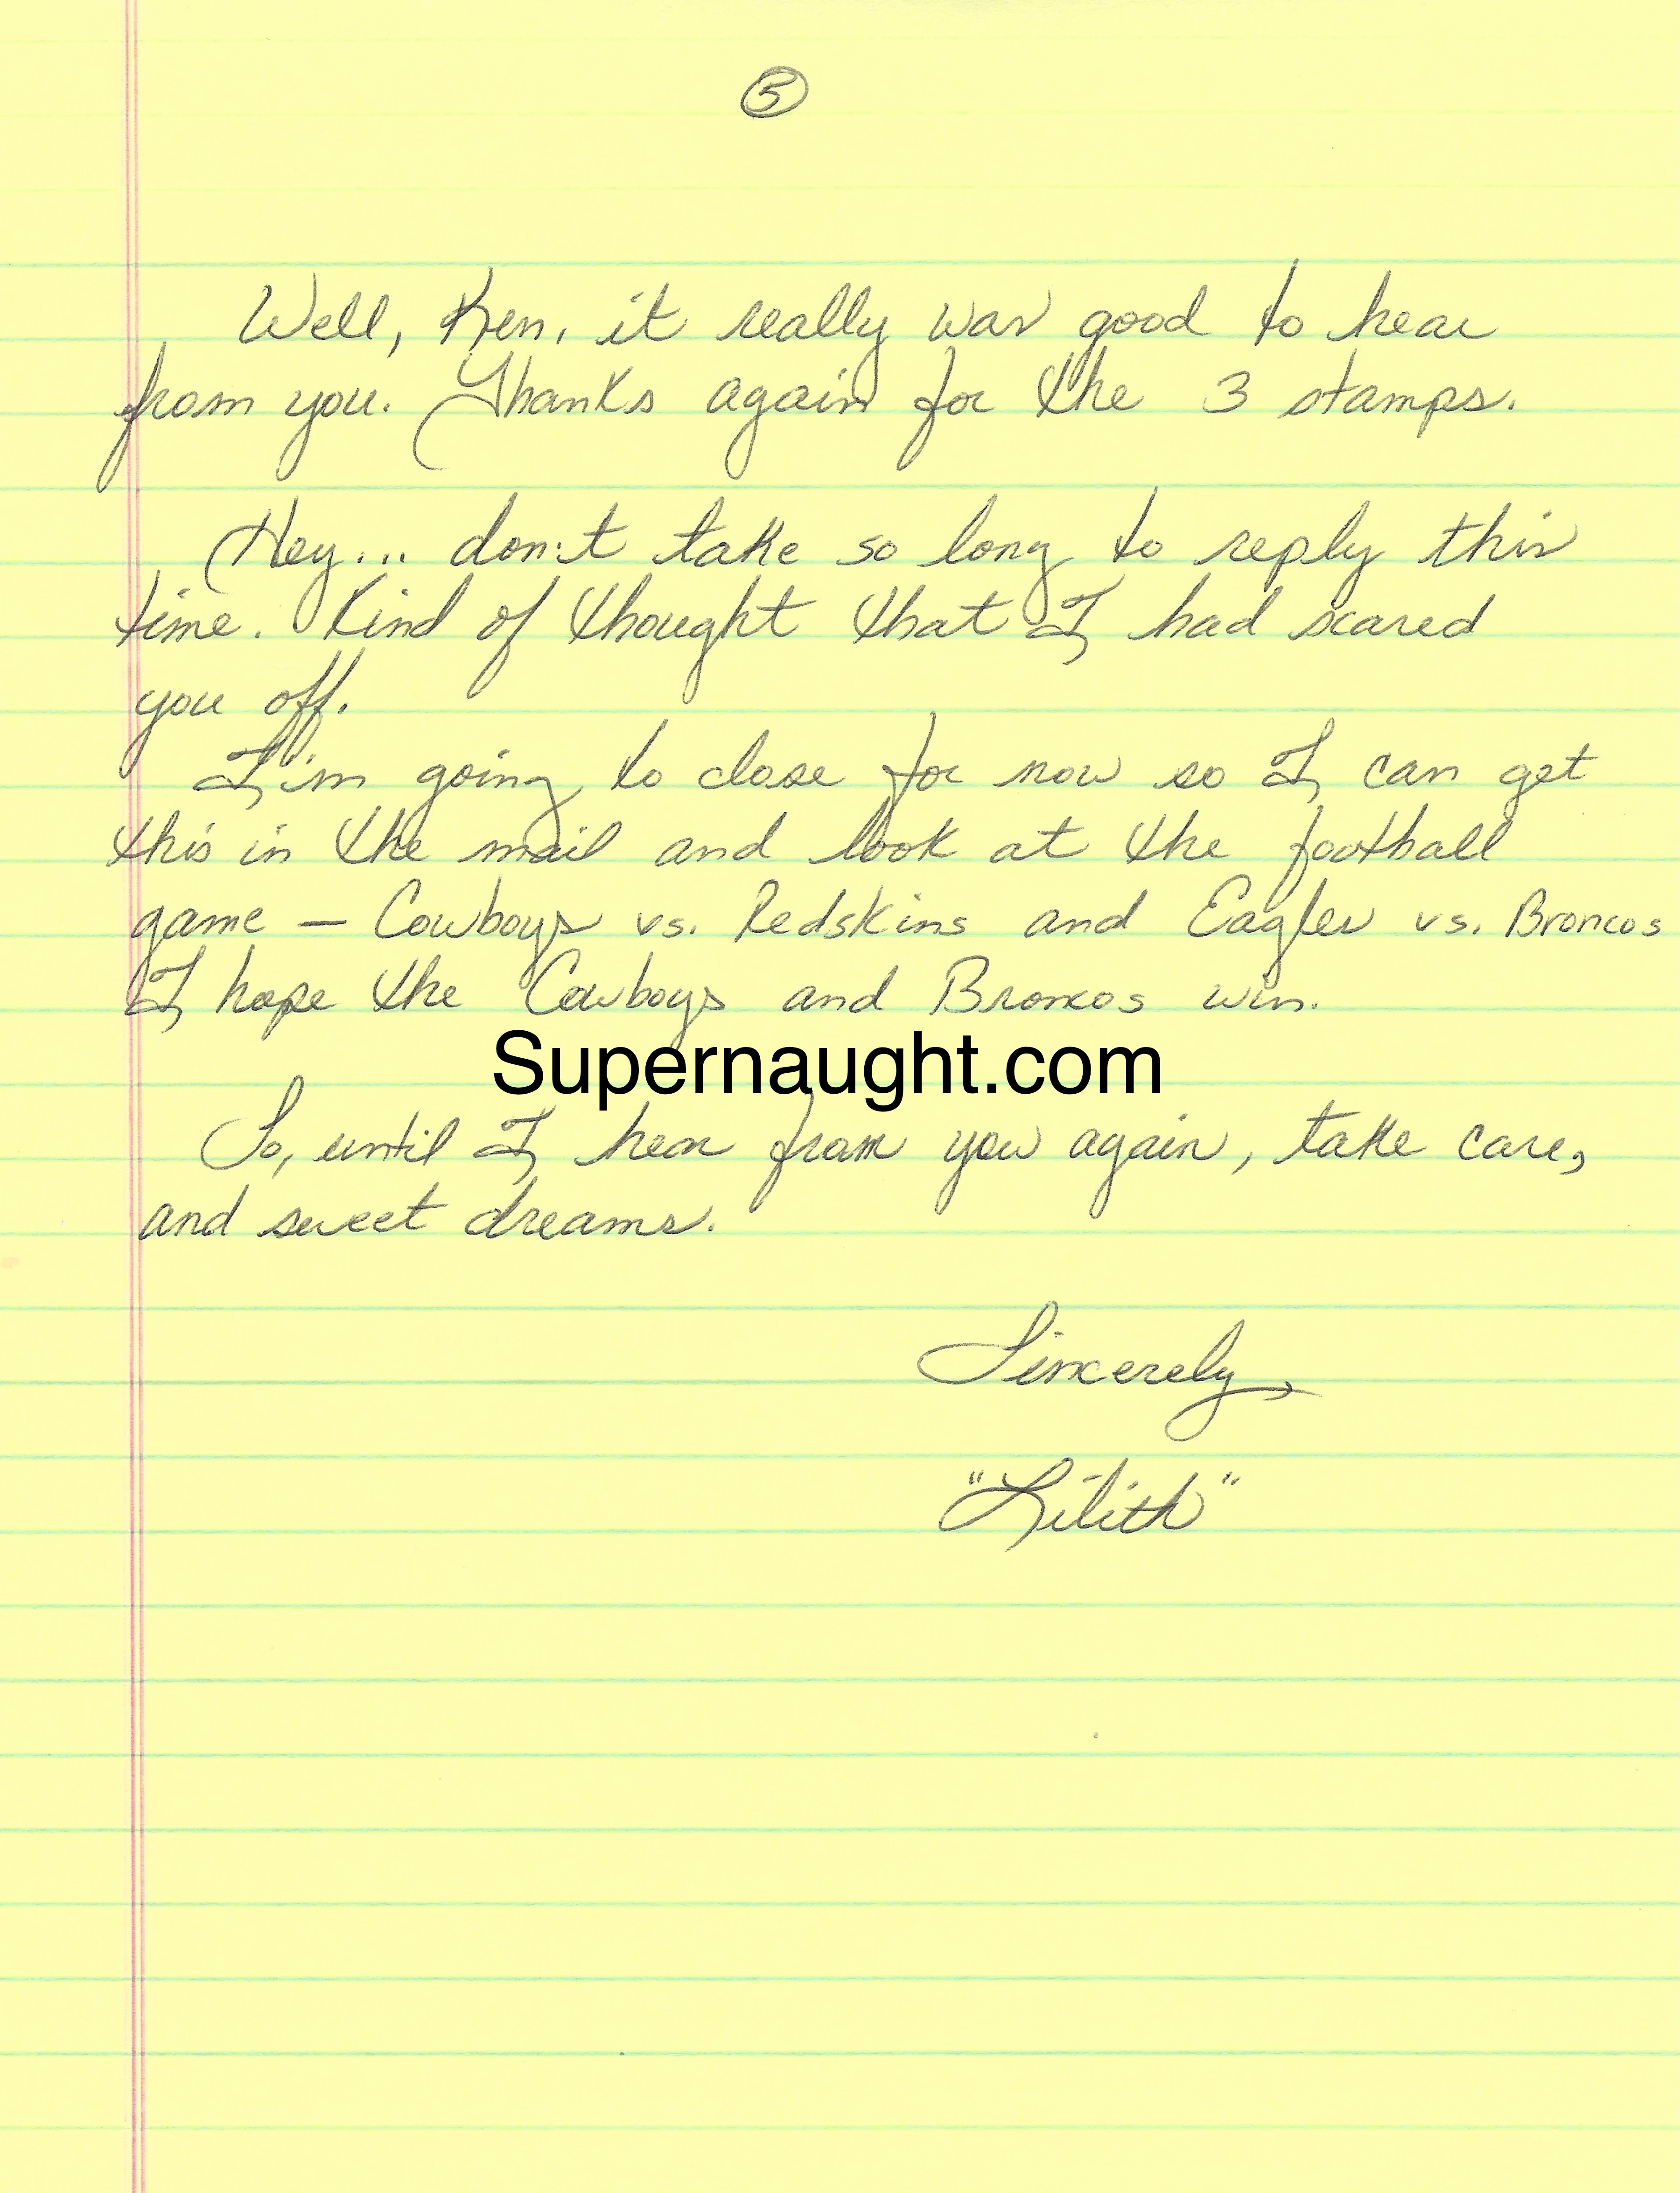 5
Well, Ken, it really was good to hear
from you. Thanks again for the 3 stamps.
Hey... don't take so long to reply this
time. Kind of thought that I had scared
you off.
I'm going to close for now so I can get
this in the mail and look at the football
game — Cowboys vs. Redskins and Eagles vs. Broncos
I hope the Cowboys and Broncos win.
Supernaught.com
So, until I hear from you again, take care,
and sweet dreams.
Sincerely,
"Lilith"